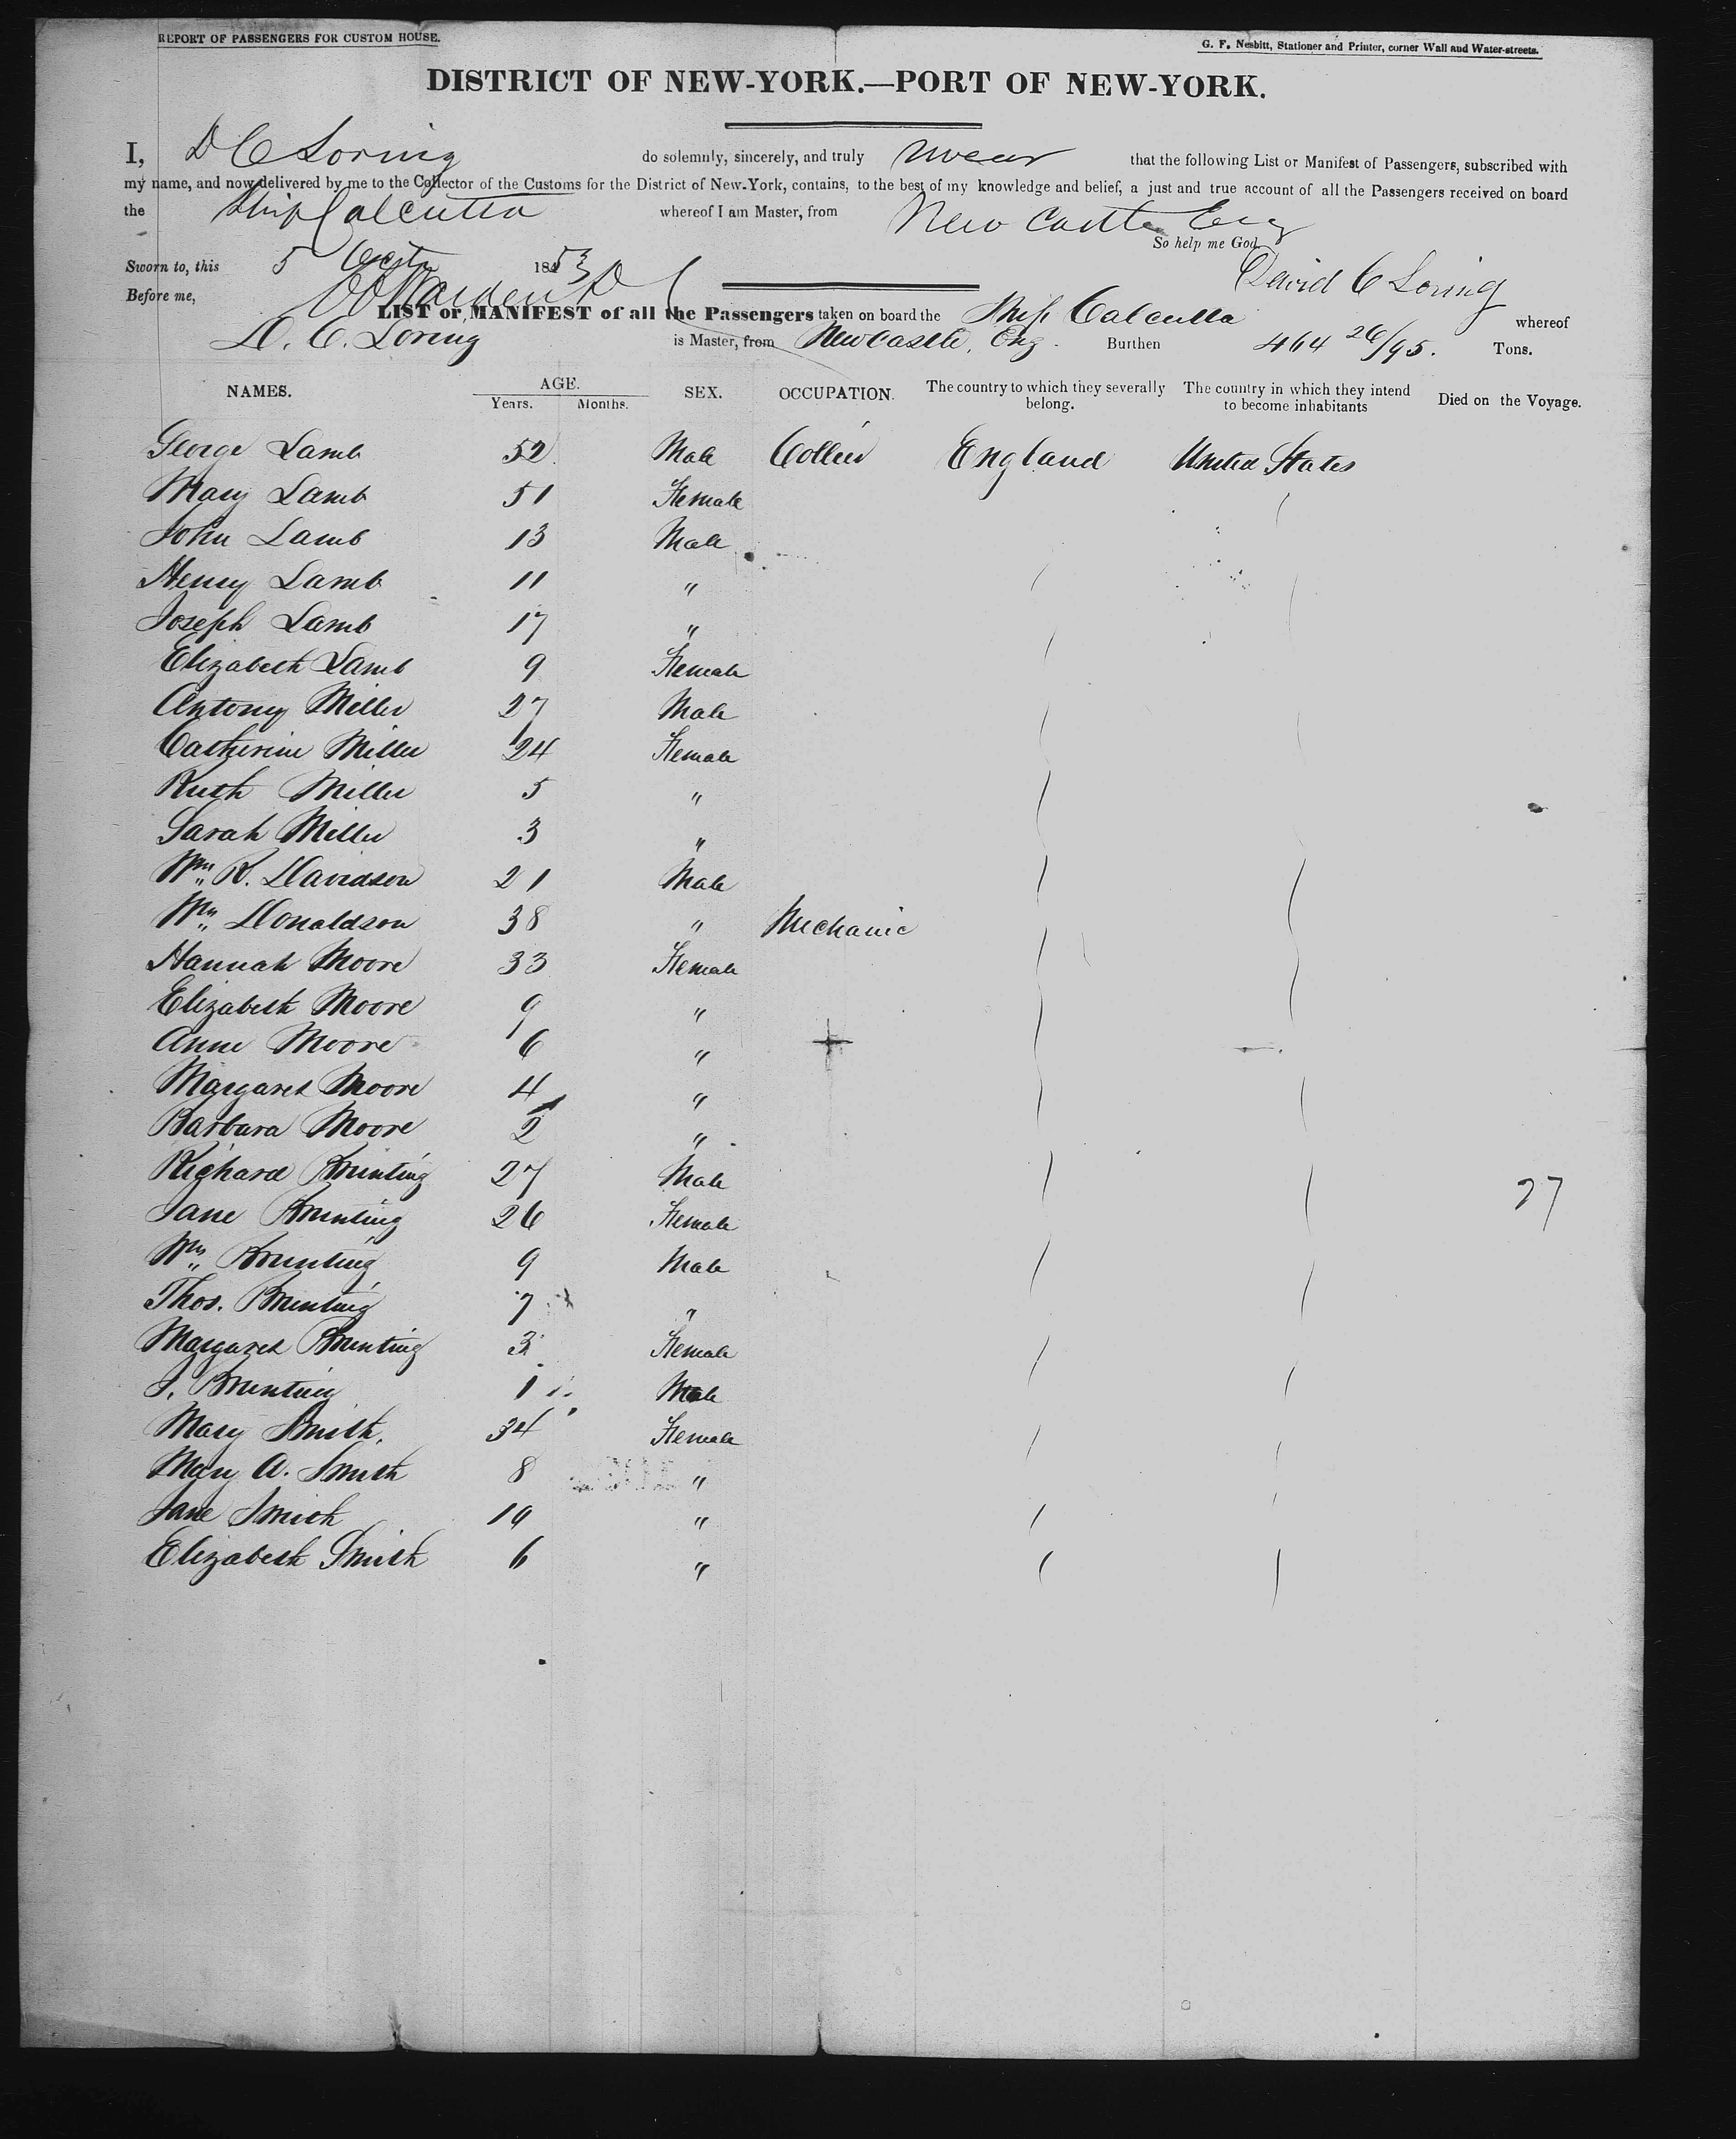 REPORT OF PASSENGERS FOR CUSTOM HOUSE.
G. F. Nesbitt, Stationer and Printer, corner Wall and Water-streets.
DISTRICT OF NEW-YORK.—PORT OF NEW-YORK.
I, D C Loring do solemnly, sincerely, and truly swear that the following List or Manifest of Passengers, subscribed with
my name, and now delivered by me to the Collector of the Customs for the District of New-York, contains, to the best of my knowledge and belief, a just and true account of all the Passengers received on board
the Ship Calcutta whereof I am Master, from New Castle Eng
So help me God.
Sworn to, this 5 1853 David C Loring
Before me,
LIST or MANIFEST of all the Passengers taken on board the Ship Calcutta whereof
D. C. Loring is Master, from Newcastle, Eng. Burthen 464 26/95. Tons.
NAMES. AGE. Years. Months. SEX. OCCUPATION. The country to which they severally belong. The country in which they intend to become inhabitants Died on the Voyage.
George Lamb 52 Male Collier England United States
Mary Lamb 51 Female
John Lamb 13 Male
Henry Lamb 11 "
Joseph Lamb 17 "
Elizabeth Lamb 9 Female
Antony Miller 27 Male
Catherine Miller 24 Female
Ruth Miller 5 "
Sarah Miller 3 "
Wm R. Davidson 21 Male
Wm Donaldson 38 " Mechanic
Hannah Moore 33 Female
Elizabeth Moore 9 "
Anne Moore 6 "
Margaret Moore 4 "
Barbara Moore 2 "
Richard Brunting 27 Male 27
Jane Brunting 26 Female
Wm Brunting 9 Male
Thos. Brunting 7 "
Margaret Brunting 3 Female
J. Brunting 1 Male
Mary Smith. 34 Female
Mary A. Smith 8 "
Jane Smith 19 "
Elizabeth Smith 6 "